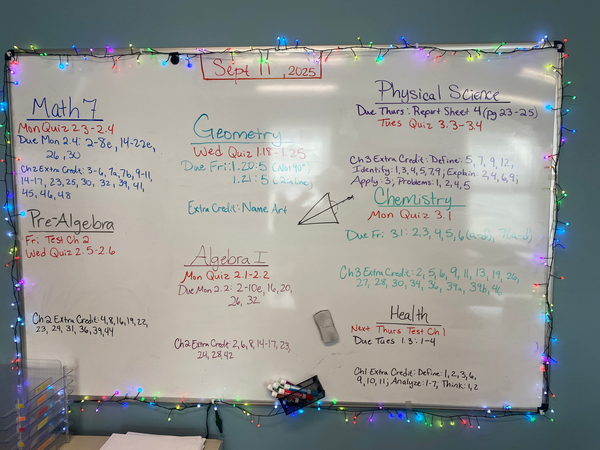 Sept 11, 2025
Math 7
Mon Quiz 2.3-2.4
Due Mon 2.4: 2-8e, 14-22e,
26, 30
Ch2 Extra Credit: 3-6, 7a, 7b, 9-11,
14-17, 23, 25, 30, 32, 39, 41,
45, 46, 48
Pre-Algebra
Fri: Test Ch 2
Wed Quiz 2.5-2.6
Ch2 Extra Credit: 4, 8, 16, 19, 22,
23, 29, 31, 36, 39, 44
Geometry
Wed Quiz 1.18-1.25
Due Fri: 1.20: 5 (Not 90°)
1.21: 5
Extra Credit: Name Art
Algebra I
Mon Quiz 2.1-2.2
Due Mon 2.2: 2-10e, 16, 20,
26, 32
Ch2 Extra Credit: 2, 6, 8, 14-17, 23,
24, 28, 42
Physical Science
Due Thurs: Report Sheet 4 (pg 23-25)
Tues Quiz 3.3-3.4
Ch3 Extra Credit: Define: 5, 7, 9, 12,
Identify: 1, 3, 4, 5, 7, 9; Explain: 2, 4, 6, 9;
Apply: 3; Problems: 1, 2, 4, 5
Chemistry
Mon Quiz 3.1
Due Fri 3.1: 2, 3, 4, 5, 6(a-d), 7(a-d)
Ch3 Extra Credit: 2, 5, 6, 9, 11, 13, 19, 26,
27, 28, 30, 34, 36, 39a, 39b, 46
Health
Next Thurs Test Ch 1
Due Tues 1.3: 1-4
Ch1 Extra Credit: Define: 1, 2, 3, 6,
9, 10, 11; Analyze: 1-7, Think: 1, 2